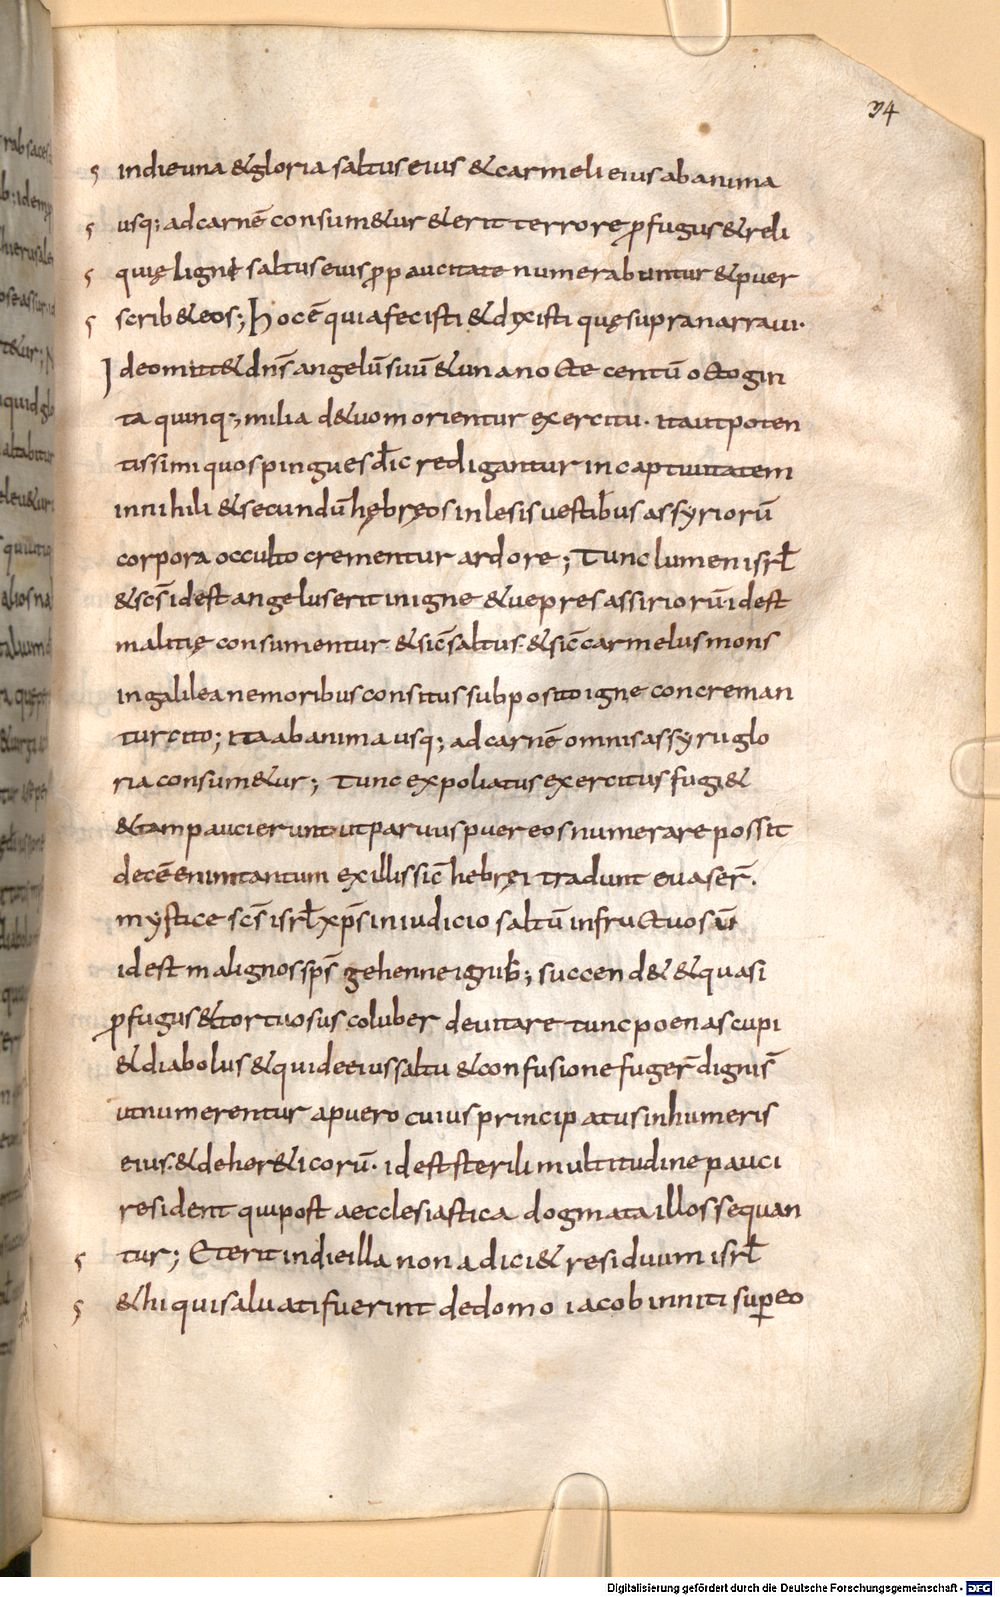 34
in die una & gloria saltus eius & carmeli eius ab anima
usq; ad carnē consum&ur & erit terrore ꝓfugus & reli
quię ligni saltus eius ꝓ paucitate numerabuntur & puer
scrib& eos; Hoc ē quia fecisti & dyxisti quę supra narraui.
Ideo mitt& dn̄s angelū suū & una nocte centū octogin
ta quinq; milia d&uom orientur exercitu. ita ut poten
tissimi quos pingues dīc redigantur in captiuitatem
in nihili & secundū hębręos inlesis uestibus assyriorū
corpora occulto crementur ardore; Tunc lumen isrł
& scs̄ id est angelus erit in igne & uepres assiriorū id est
malitię consumentur. & sic̄ saltus. & sic̄ carmelus mons
in galilea nemoribus consitus subposito igne concreman
tur cito; ita ab anima usq; ad carnē omnis assyrii glo
ria consum&ur; Tunc expoliatus exercitus fugi&
& tam pauci erunt ut paruus puer eos numerare possit
decē enim tantum ex illis sic̄ hebręi tradunt euaser̄.
mystice scs̄ isrł xp̄s in iudicio saltū infructuosū
id est malignos sps̄ gehenne ignib; succend& & quasi
ꝓfugus & tortuosus coluber deuitare tunc poenas cupi
& diabolus & qui de eius saltu & confusione fuger̄ digni s̄
ut numerentur a puero cuius principatus in humeris
eius. & de her&icorū. id est sterili multitudine pauci
resident qui post aecclesiastica dogmata illos sequan
tur; Et erit in die illa non adici& residuum isrł
& hi qui saluati fuerint de domo iacob inniti suꝑ eo
Digitalisierung gefördert durch die Deutsche Forschungsgemeinschaft - DFG